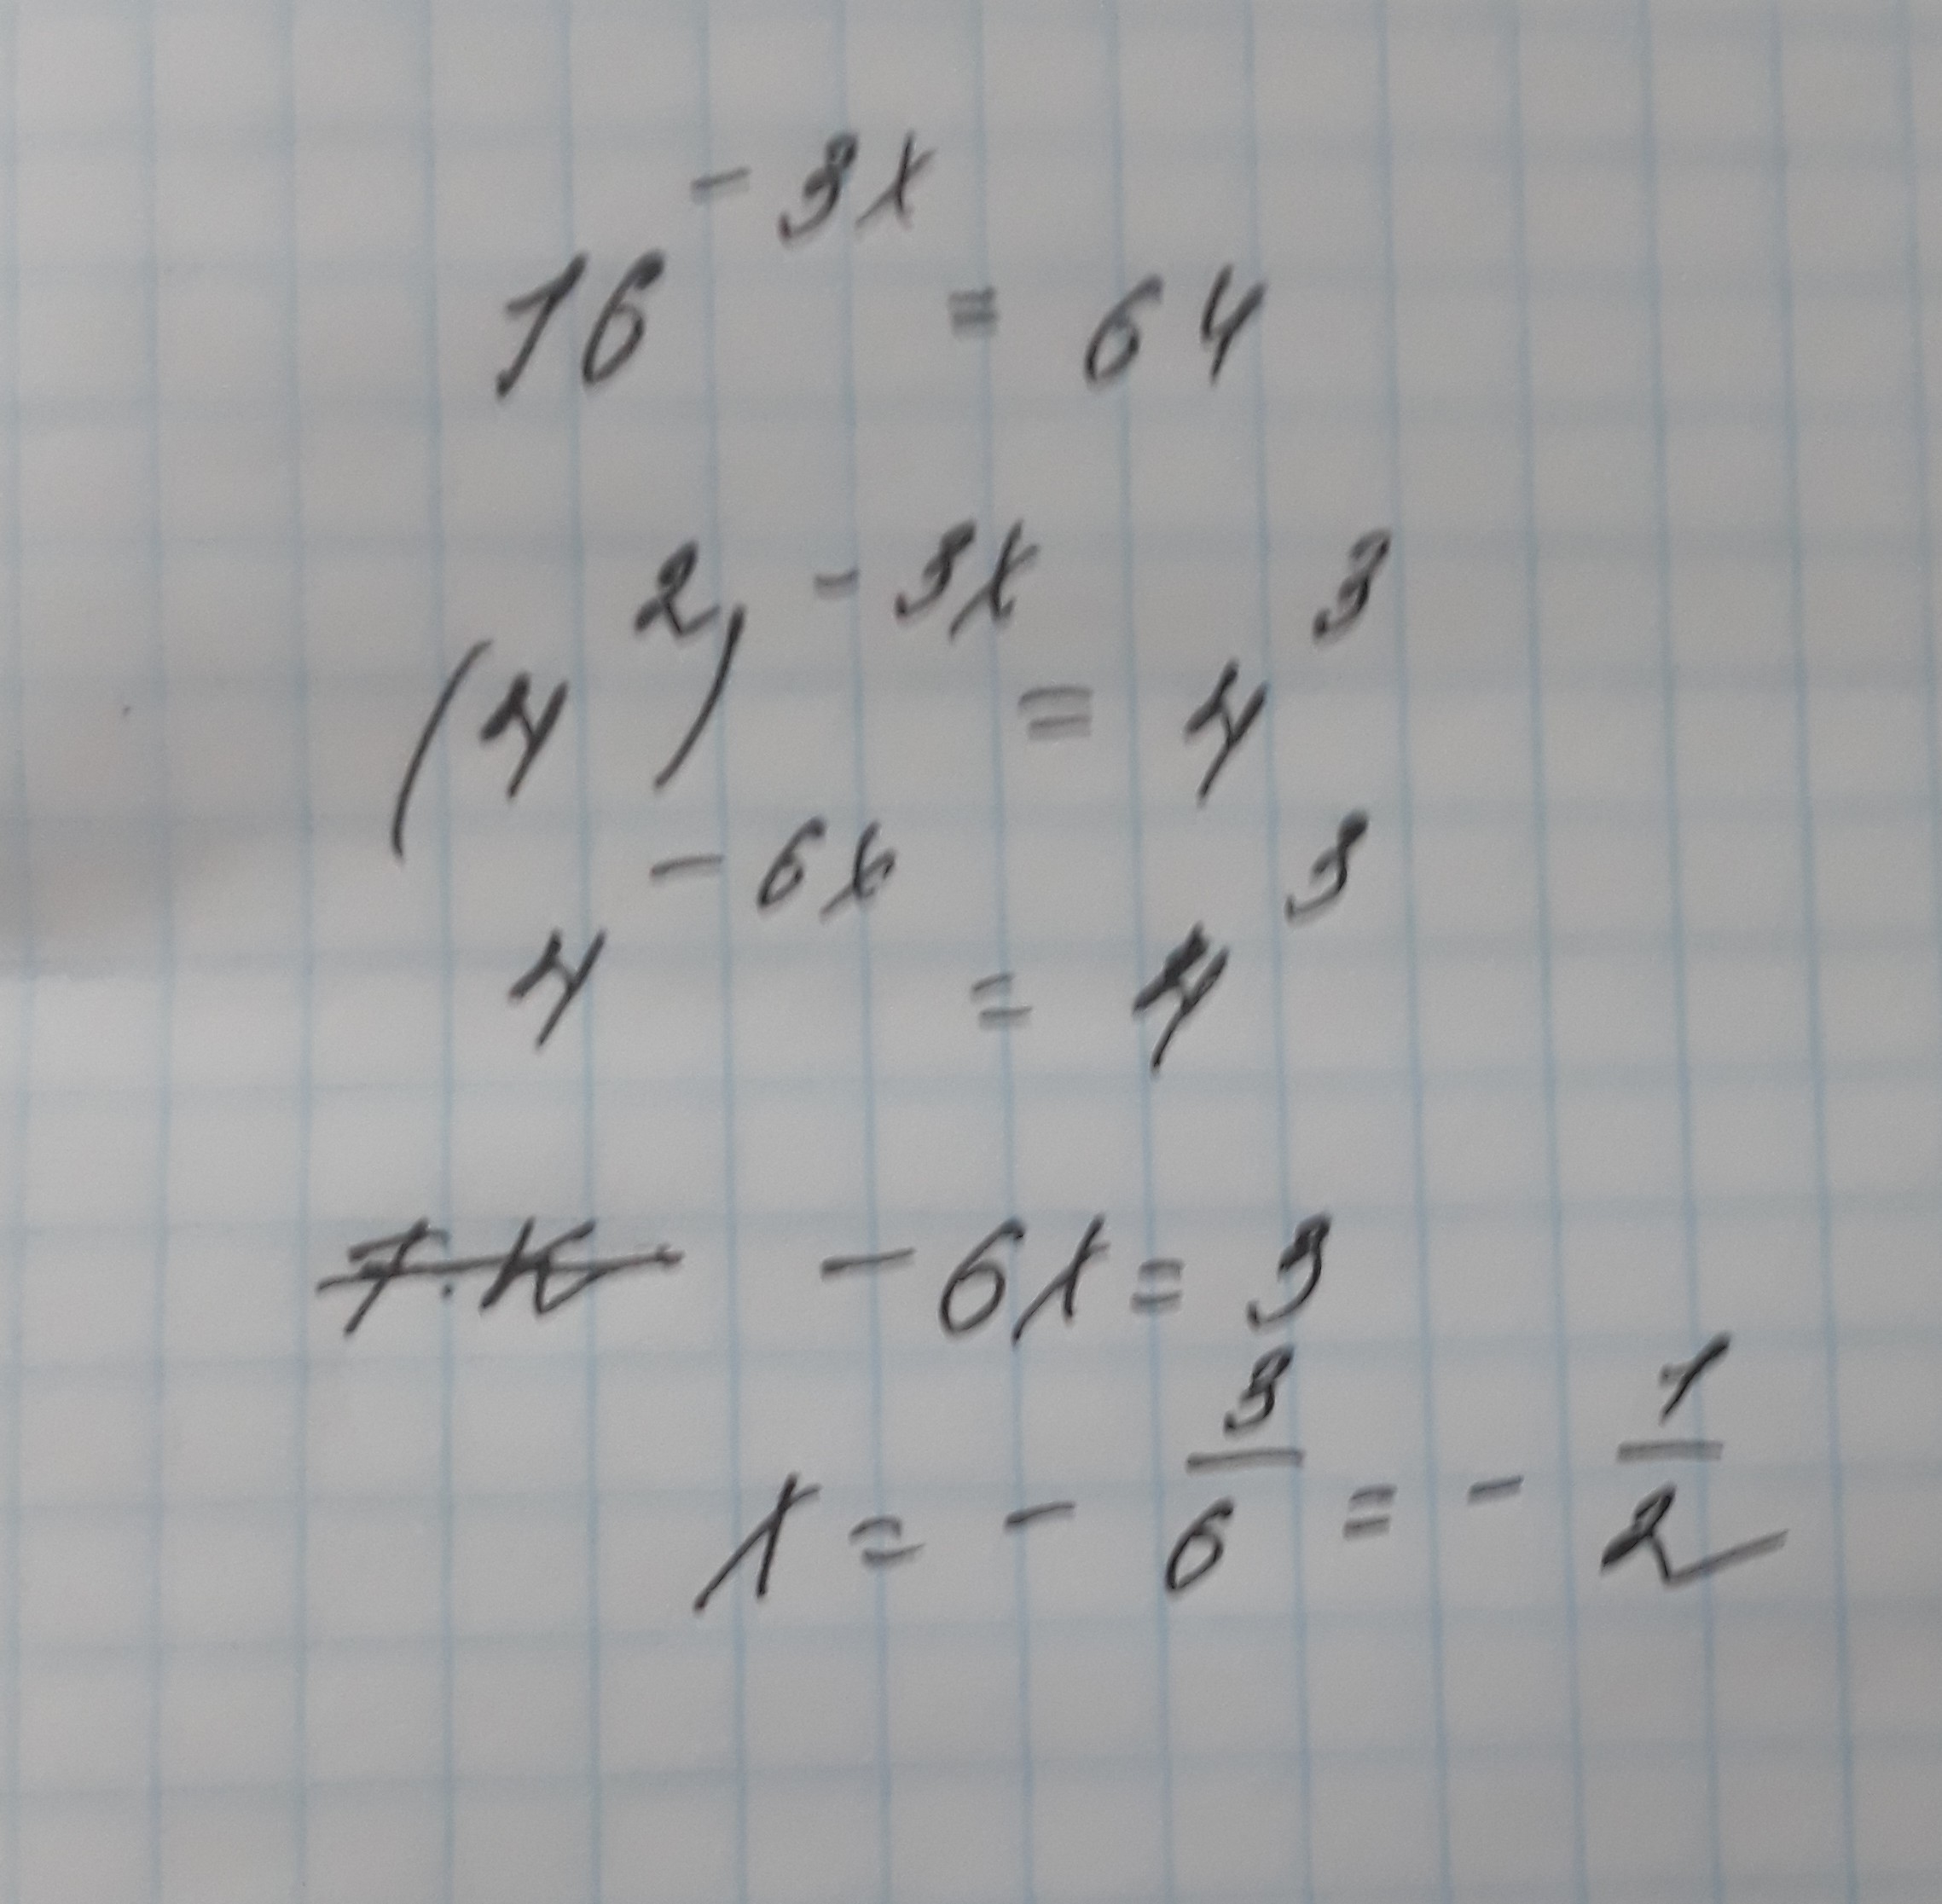 16^{-3x} = 64
(4^2)^{-3x} = 4^3
4^{-6x} = 4^3
т.к -6x = 3
x = - \frac{3}{6} = - \frac{1}{2}